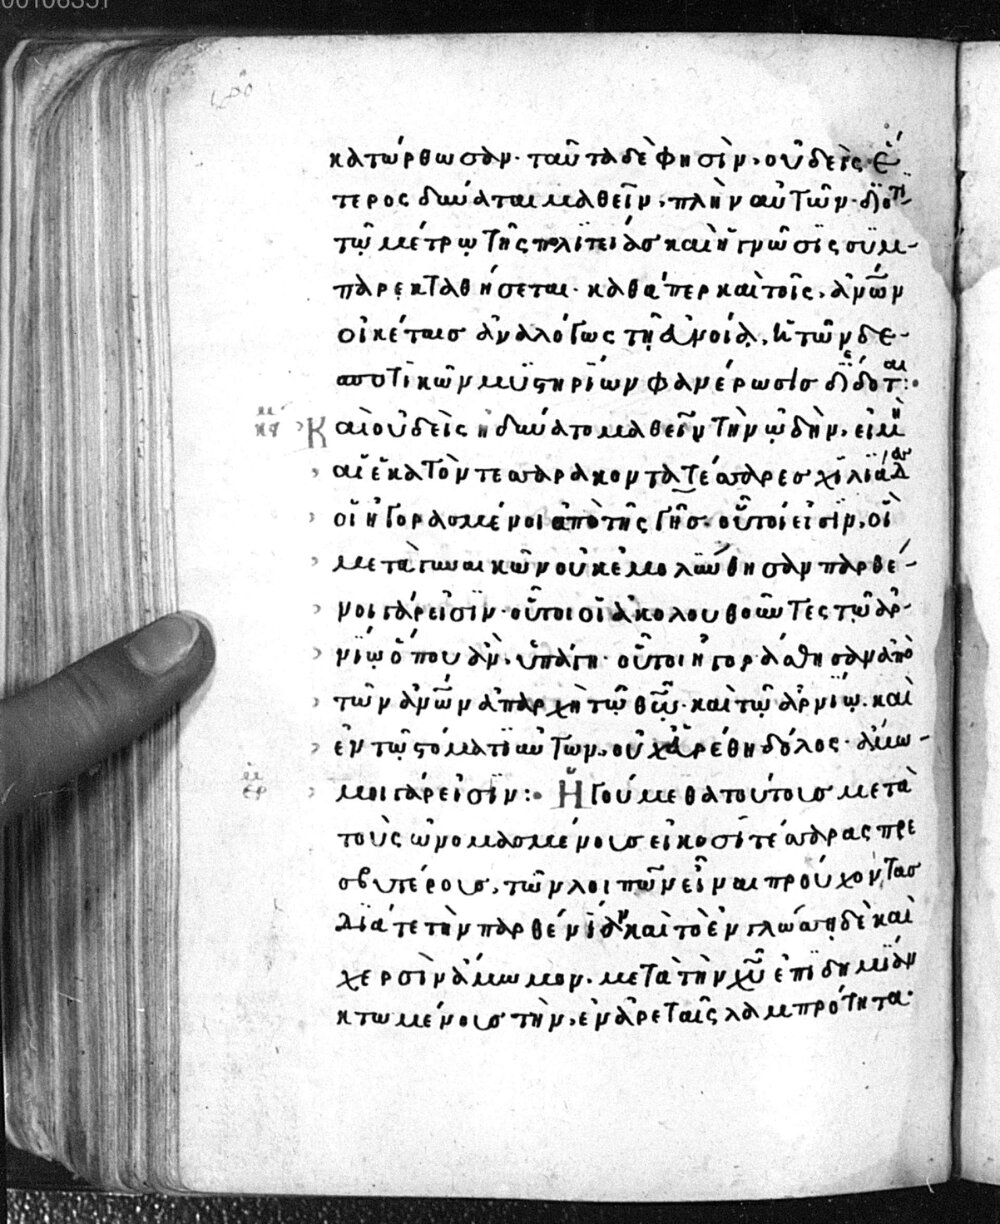 κατώρθωσαν· ταῦτα δὲ φησὶν, οὐδεὶς ἕ
τερος δύναται μαθεῖν, πλὴν αὐτῶν· διότι
τῷ μέτρῳ τῆς πολιτείασ καὶ ἡ γνῶσις συμ-
παρεκταθήσεται· καθάπερ καὶ τοῖς, ἀνῶν
οἰκέταισ ἀναλόγως τῇ εὐνοίᾳ, ἡ τῶν δε-
σποτικῶν μυστηρίων φανέρωσισ δίδοται:·
Καὶ οὐδεὶς ἠδύνατο μαθεῖν τὴν ᾠδὴν, εἰ μὴ
αἱ ἑκατὸν τεσσαράκοντα τέσσαρεσ χιλιάδασ
οἱ ἠγορασμένοι ἀπὸ τῆς γῆσ· οὗτοί εἰσιν, οἳ
μετὰ γυναικῶν οὐκ ἐμολύνθησαν παρθέ-
νοι γάρ εἰσϊν· οὗτοι οἱ ἀκολουθοῦντες τῷ ἀρ-
νίῳ ὅπου ἂν, ὑπάγῃ· οὗτοι ἠγοράσθησαν ἀπὸ
τῶν ἀνῶν ἀπαρχὴ τῷ θῷ· καὶ τῷ ἀρνίῳ· καὶ
ἐν τῷ στόματι αὐτῶν, οὐχ εὑρέθη δόλος· ἄμω-
μοι γάρ εἰσϊν:· Ἡγούμεθα τούτουσ μετὰ
τοὺς ὠνομασμένουσ εἰκοσιτέσσαρας πρε
σβυτέρουσ, τῶν λοιπῶν εἶναι προύχοντασ
διά τε τὴν παρθενίαν καὶ τὸ ἐν γλώσσῃ δὲ καὶ
χερσὶν ἄμωμον· μετὰ τὴν χῦ ἐπιδημίαν
κτωμένουσ τὴν, ἐν ἀρεταῖς λαμπρότητα·